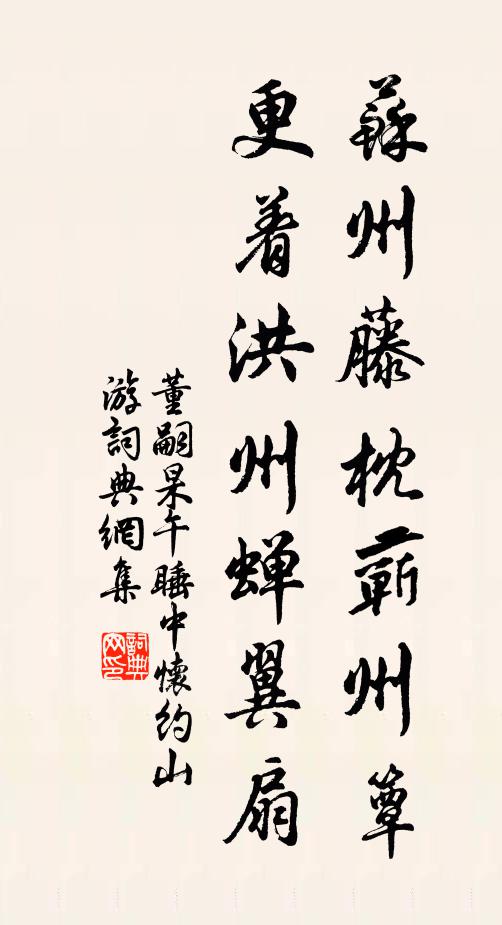 蘇州藤枕蘄州簟
更着洪州蟬翼扇
董嗣杲午睡中懷約山
游詞典網集
詞典
网印